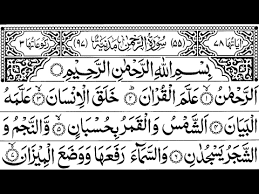 اٰیَاتُهَا ۷۸ (۵۵) سُوْرَةُ الرَّحْمٰنِ مَدَنِيَّةٌ (۹۷) رُكُوْعَاتُهَا ۳
بِسْمِ اللّٰهِ الرَّحْمٰنِ الرَّحِيْمِ
اَلرَّحْمٰنُ ۙ﴿۱﴾ عَلَّمَ الْقُرْاٰنَ ؕ﴿۲﴾ خَلَقَ الْاِنْسَانَ ۙ﴿۳﴾ عَلَّمَهُ
الْبَيَانَ ﴿۴﴾ اَلشَّمْسُ وَالْقَمَرُ بِحُسْبَانٍ ۪﴿۵﴾ وَّالنَّجْمُ وَ
الشَّجَرُ يَسْجُدٰنِ ﴿۶﴾ وَالسَّمَآءَ رَفَعَهَا وَوَضَعَ الْمِيْزَانَ ۙ﴿۷﴾